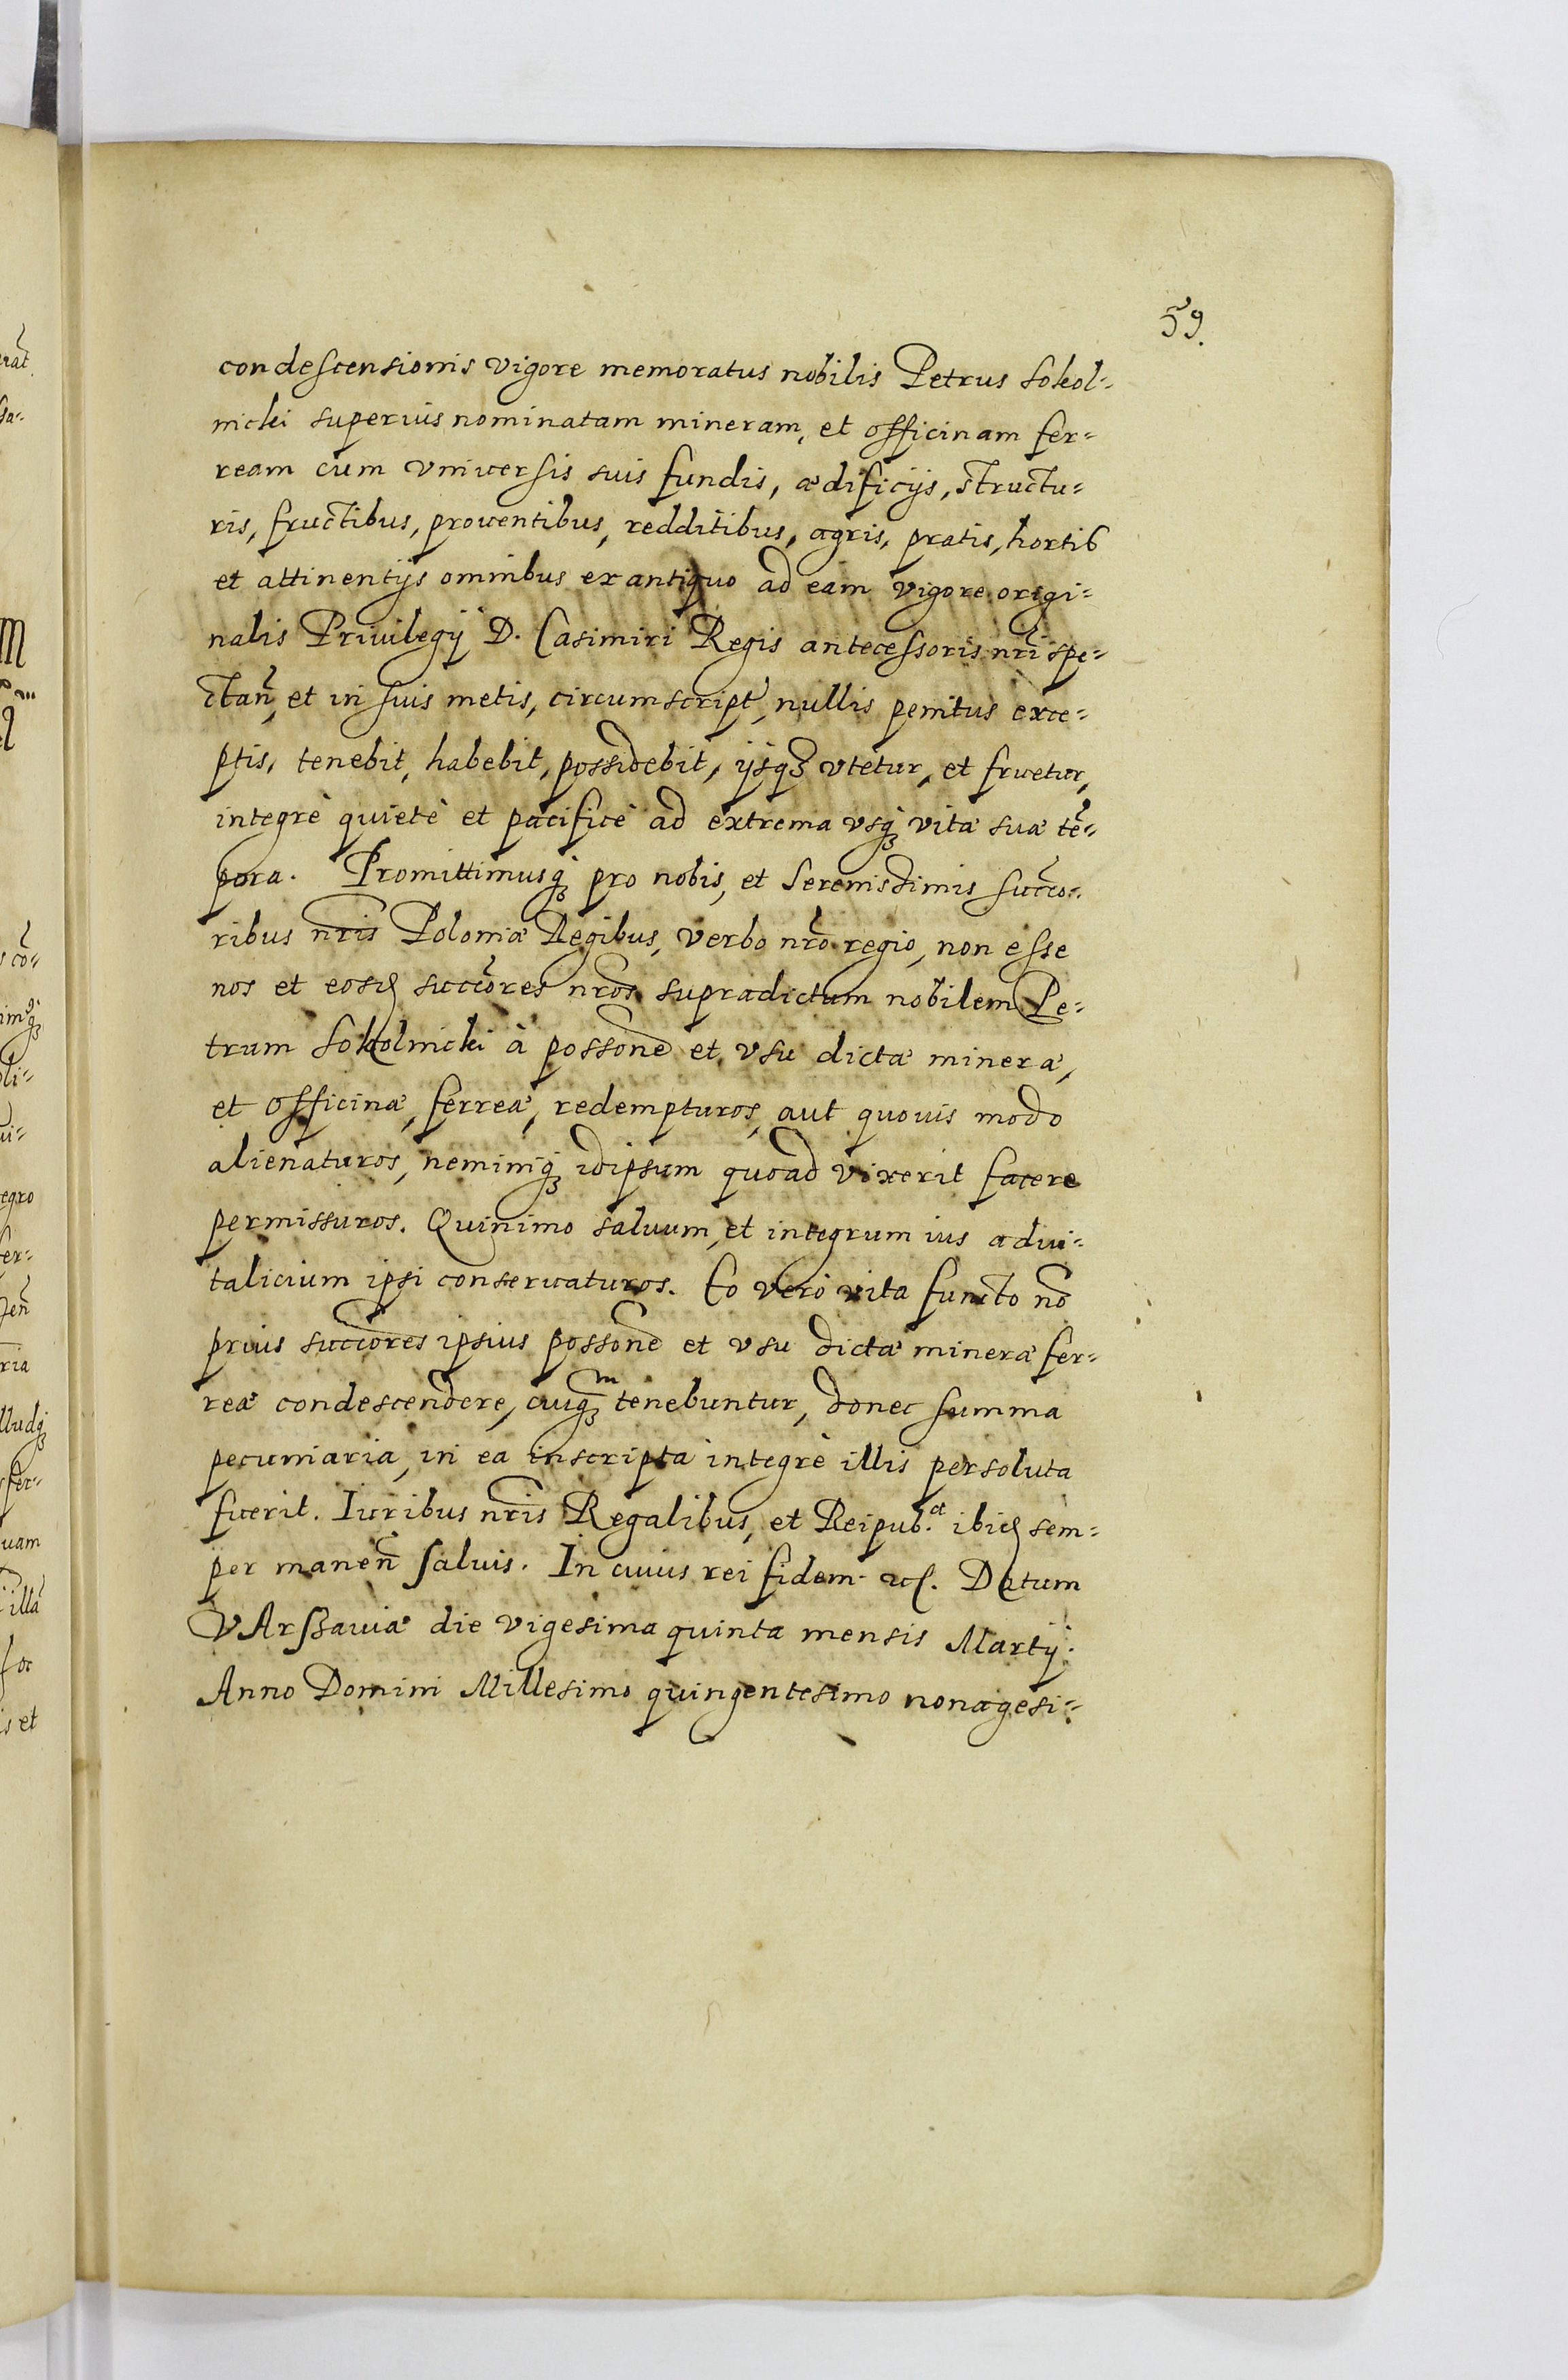 59.
condescensionis vigore memoratus nobilis Petrus Sokol=
nicki superius nominatam mineram, et officinam fer=
ream cum vniuersis suis fundis, ædificijs, structu=
ris, fructibus, prouentibus, redditibus, agris, pratis, hortib
et attinentijs omnibus ex antiquo ad eam vigore origi=
nalis Priuilegij D. Casimiri Regis antecessoris nri spe=
ctan̄, et in suis metis, circumscript, nullis penitus exce=
ptis, tenebit, habebit, possidebit, ijsqꝫ vtetur, et fruetur,
integrè quietè et pacificè ad extrema vsqꝫ vitæ suæ tē=
pora. Promittimusqꝫ pro nobis, et Serenissimis succo=
ribus nris Poloniæ Regibus, verbo nro regio, non esse
nos et eosd succores nros supradictum nobilem Pe=
trum Sokolnicki à possone et vsu dictæ mineræ,
et officinæ, ferreæ, redempturos, aut quouis modo
alienaturos, neminiqꝫ idipsum quoad vixerit facere
permissuros. Quinimo saluum, et integrum ius adui=
talicium ipsi conseruaturos. Eo vero vita functo nō
prius succores ipsius possone et vsu dictæ mineræ fer=
reæ condescendere, cuiqꝫᵐ tenebuntur, donec summa
pecuniaria, in ea inscripta integrè illis persoluta
fuerit. Iuribus nris Regalibus, et Reipub.æ ibid sem=
per manen̄ saluis. In cuius rei fidem. etc. Datum
VArssauiæ die vigesima quinta mensis Martij.
Anno Domini Millesimo quingentesimo nonagesi=